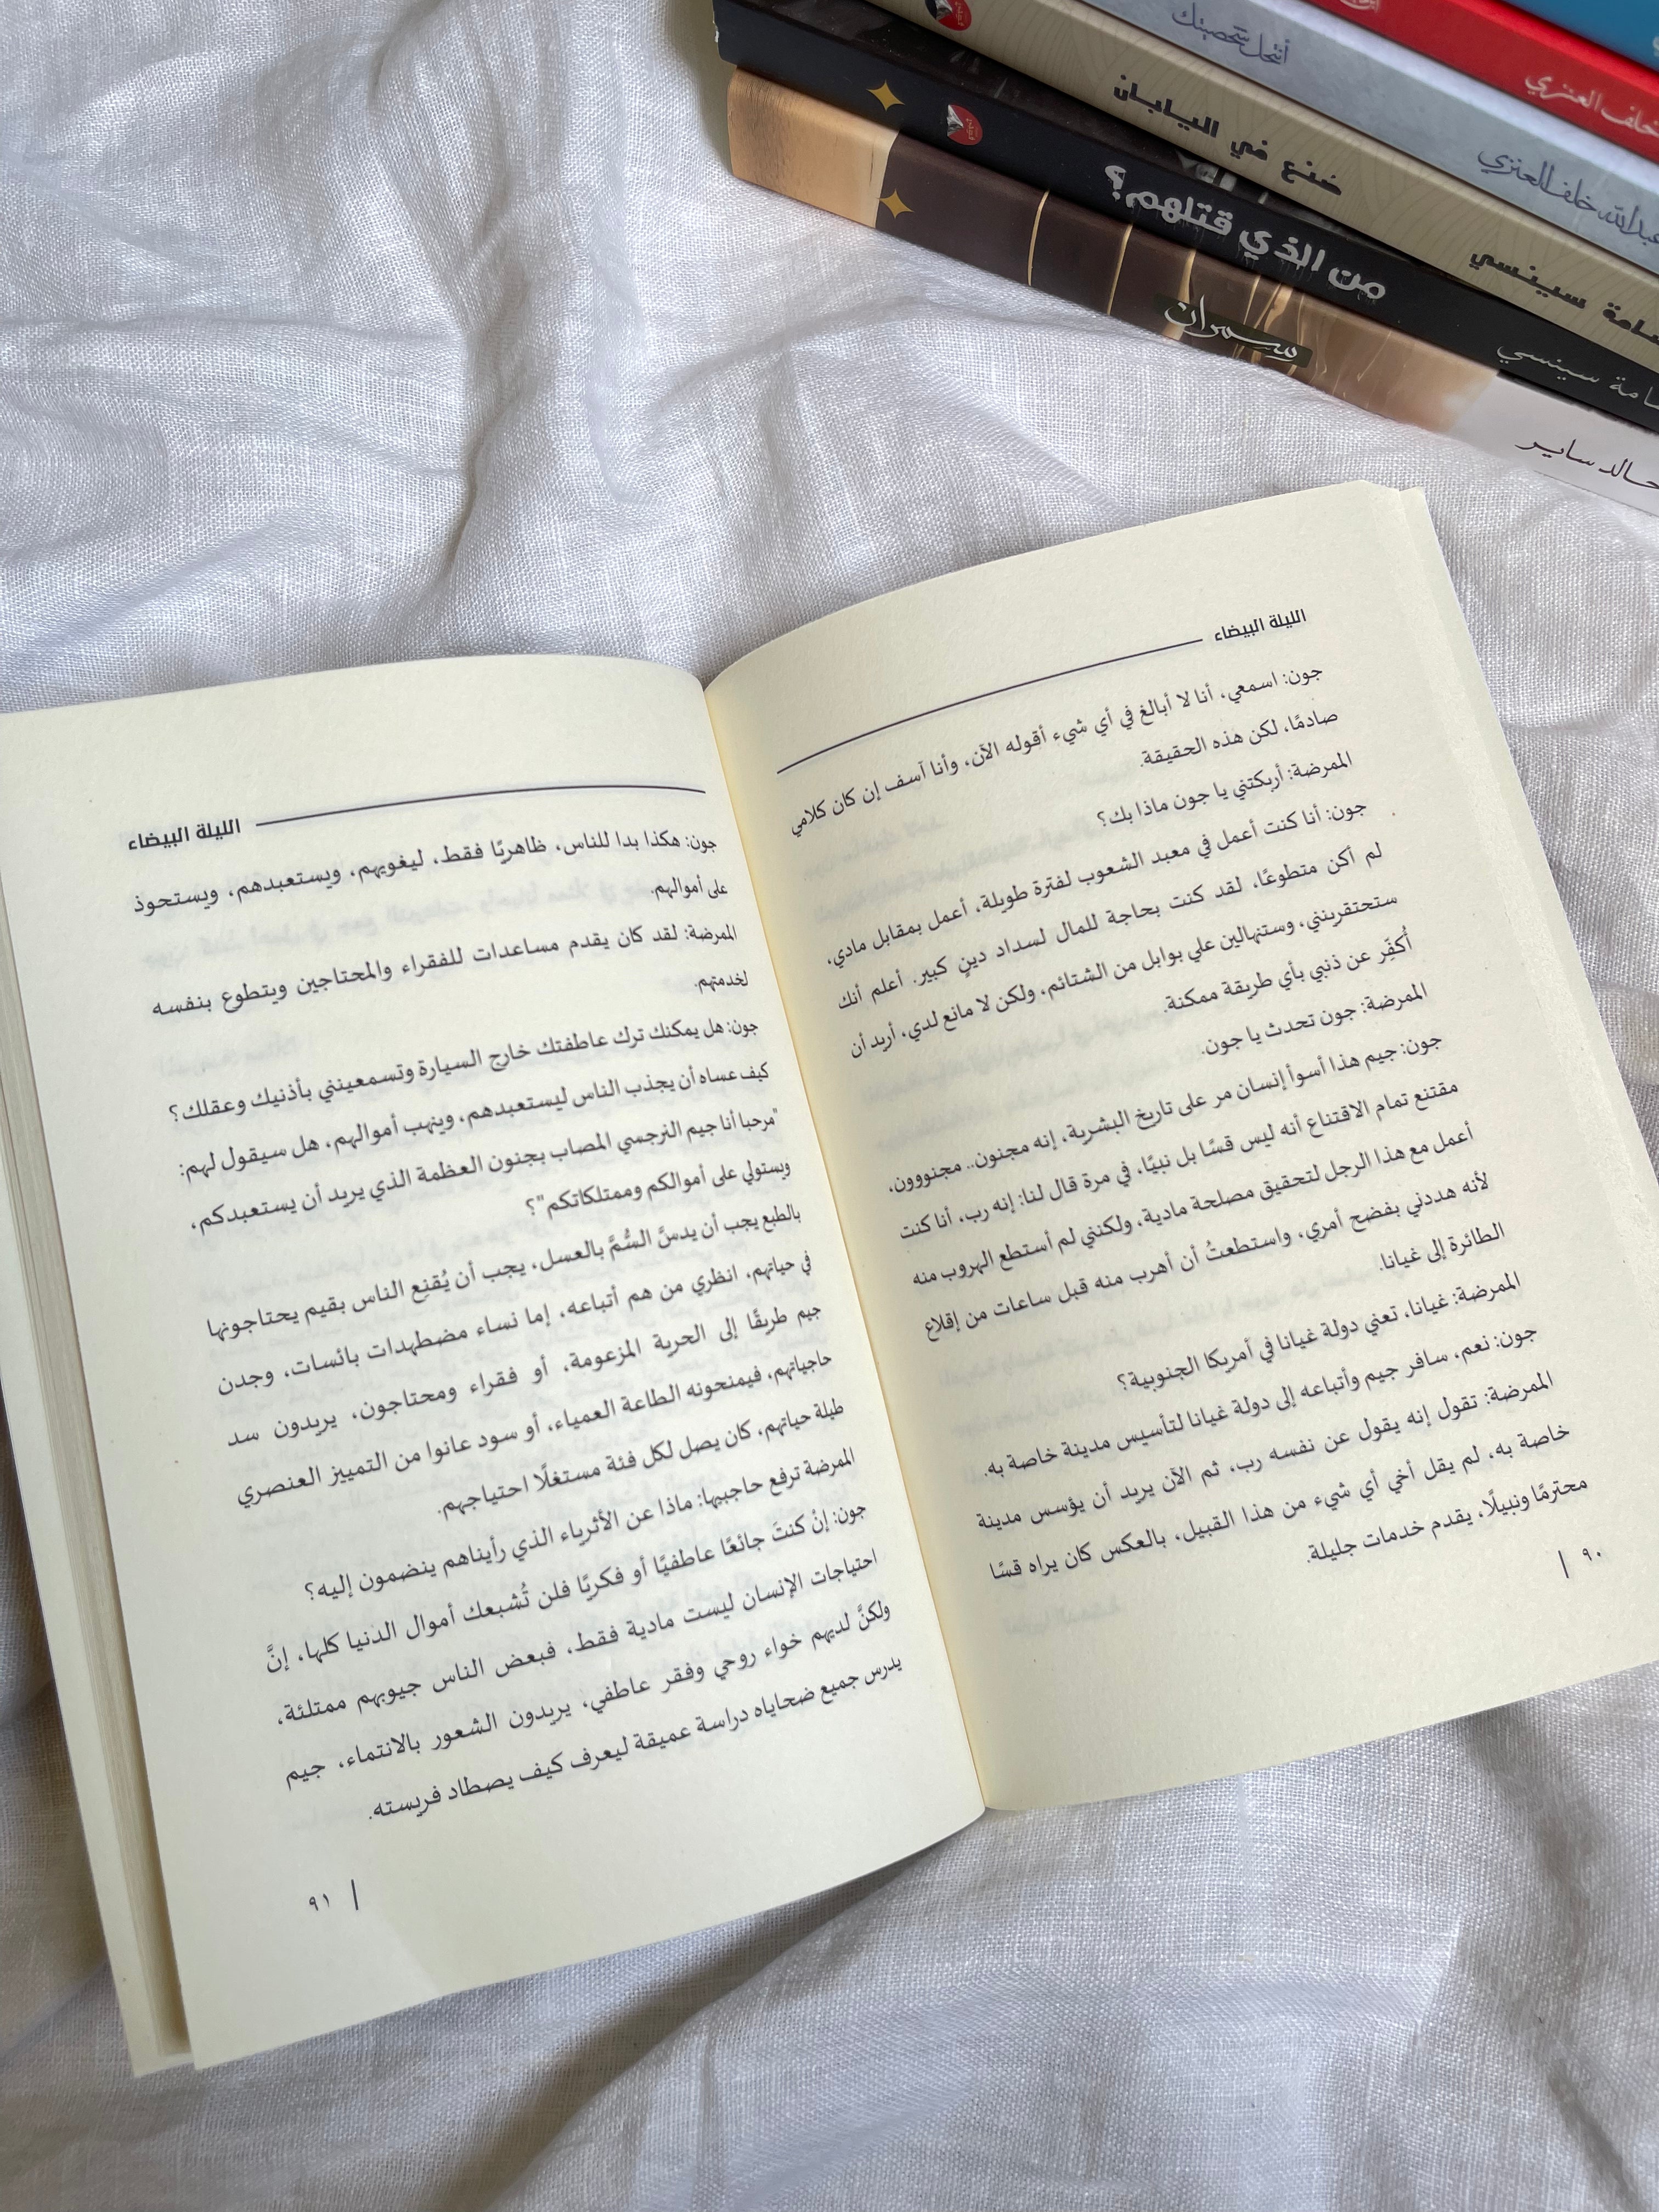 أنتحل شخصيتك
خلف العنزي
عبدالله خلف العنزي
ضبع في اليابان
سينسي
من الذي قتلهم؟
سينسي
وسمران
خالد ساير
الليلة البيضاء
جون: اسمعي، أنا لا أبالغ في أي شيء أقوله الآن، وأنا آسف إن كان كلامي
صادمًا، لكن هذه الحقيقة.
الممرضة: أربكتني يا جون ماذا بك؟
جون: أنا كنت أعمل في معبد الشعوب لفترة طويلة، أعمل بمقابل مادي،
لم أكن متطوعًا، لقد كنت بحاجة للمال لسداد دينٍ كبير. أعلم أنك
ستحتقرينني، وستنهالين علي بوابل من الشتائم، ولكن لا مانع لدي، أريد أن
أُكفّر عن ذنبي بأي طريقة ممكنة.
الممرضة: جون تحدث يا جون.
جون: جيم هذا أسوأ إنسان مر على تاريخ البشرية، إنه مجنون.. مجنووون،
مقتنع تمام الاقتناع أنه ليس قسًا بل نبيًا، في مرة قال لنا: إنه رب، أنا كنت
أعمل مع هذا الرجل لتحقيق مصلحة مادية، ولكنني لم أستطع الهروب منه
لأنه هددني بفضح أمري، واستطعتُ أن أهرب منه قبل ساعات من إقلاع
الطائرة إلى غيانا.
الممرضة: غيانا، تعني دولة غيانا في أمريكا الجنوبية؟
جون: نعم، سافر جيم وأتباعه إلى دولة غيانا لتأسيس مدينة خاصة به.
الممرضة: تقول إنه يقول عن نفسه رب، ثم الآن يريد أن يؤسس مدينة
خاصة به، لم يقل أخي أي شيء من هذا القبيل، بالعكس كان يراه قسًا
محترمًا ونبيلًا، يقدم خدمات جليلة.
٩٠
الليلة البيضاء
جون: هكذا بدا للناس، ظاهريًا فقط، ليغويهم، ويستعبدهم، ويستحوذ
على أموالهم.
الممرضة: لقد كان يقدم مساعدات للفقراء والمحتاجين ويتطوع بنفسه
لخدمتهم.
جون: هل يمكنك ترك عاطفتك خارج السيارة وتسمعينني بأذنيك وعقلك؟
كيف عساه أن يجذب الناس ليستعبدهم، وينهب أموالهم، هل سيقول لهم:
"مرحبا أنا جيم النرجسي المصاب بجنون العظمة الذي يريد أن يستعبدكم،
ويستولي على أموالكم وممتلكاتكم"؟
بالطبع يجب أن يدسَّ السُّمَّ بالعسل، يجب أن يُقنِع الناس بقيم يحتاجونها
في حياتهم، انظري من هم أتباعه، إما نساء مضطهدات بائسات، وجدن
جيم طريقًا إلى الحرية المزعومة، أو فقراء ومحتاجون، يريدون سد
حاجياتهم، فيمنحونه الطاعة العمياء، أو سود عانوا من التمييز العنصري
طيلة حياتهم، كان يصل لكل فئة مستغلًا احتياجهم.
الممرضة ترفع حاجبيها: ماذا عن الأثرياء الذي رأيناهم ينضمون إليه؟
جون: إنْ كنتَ جائعًا عاطفيًا أو فكريًا فلن تُشبعك أموال الدنيا كلها، إنَّ
احتياجات الإنسان ليست مادية فقط، فبعض الناس جيوبهم ممتلئة،
ولكنَّ لديهم خواء روحي وفقر عاطفي، يريدون الشعور بالانتماء، جيم
يدرس جميع ضحاياه دراسة عميقة ليعرف كيف يصطاد فريسته.
٩١